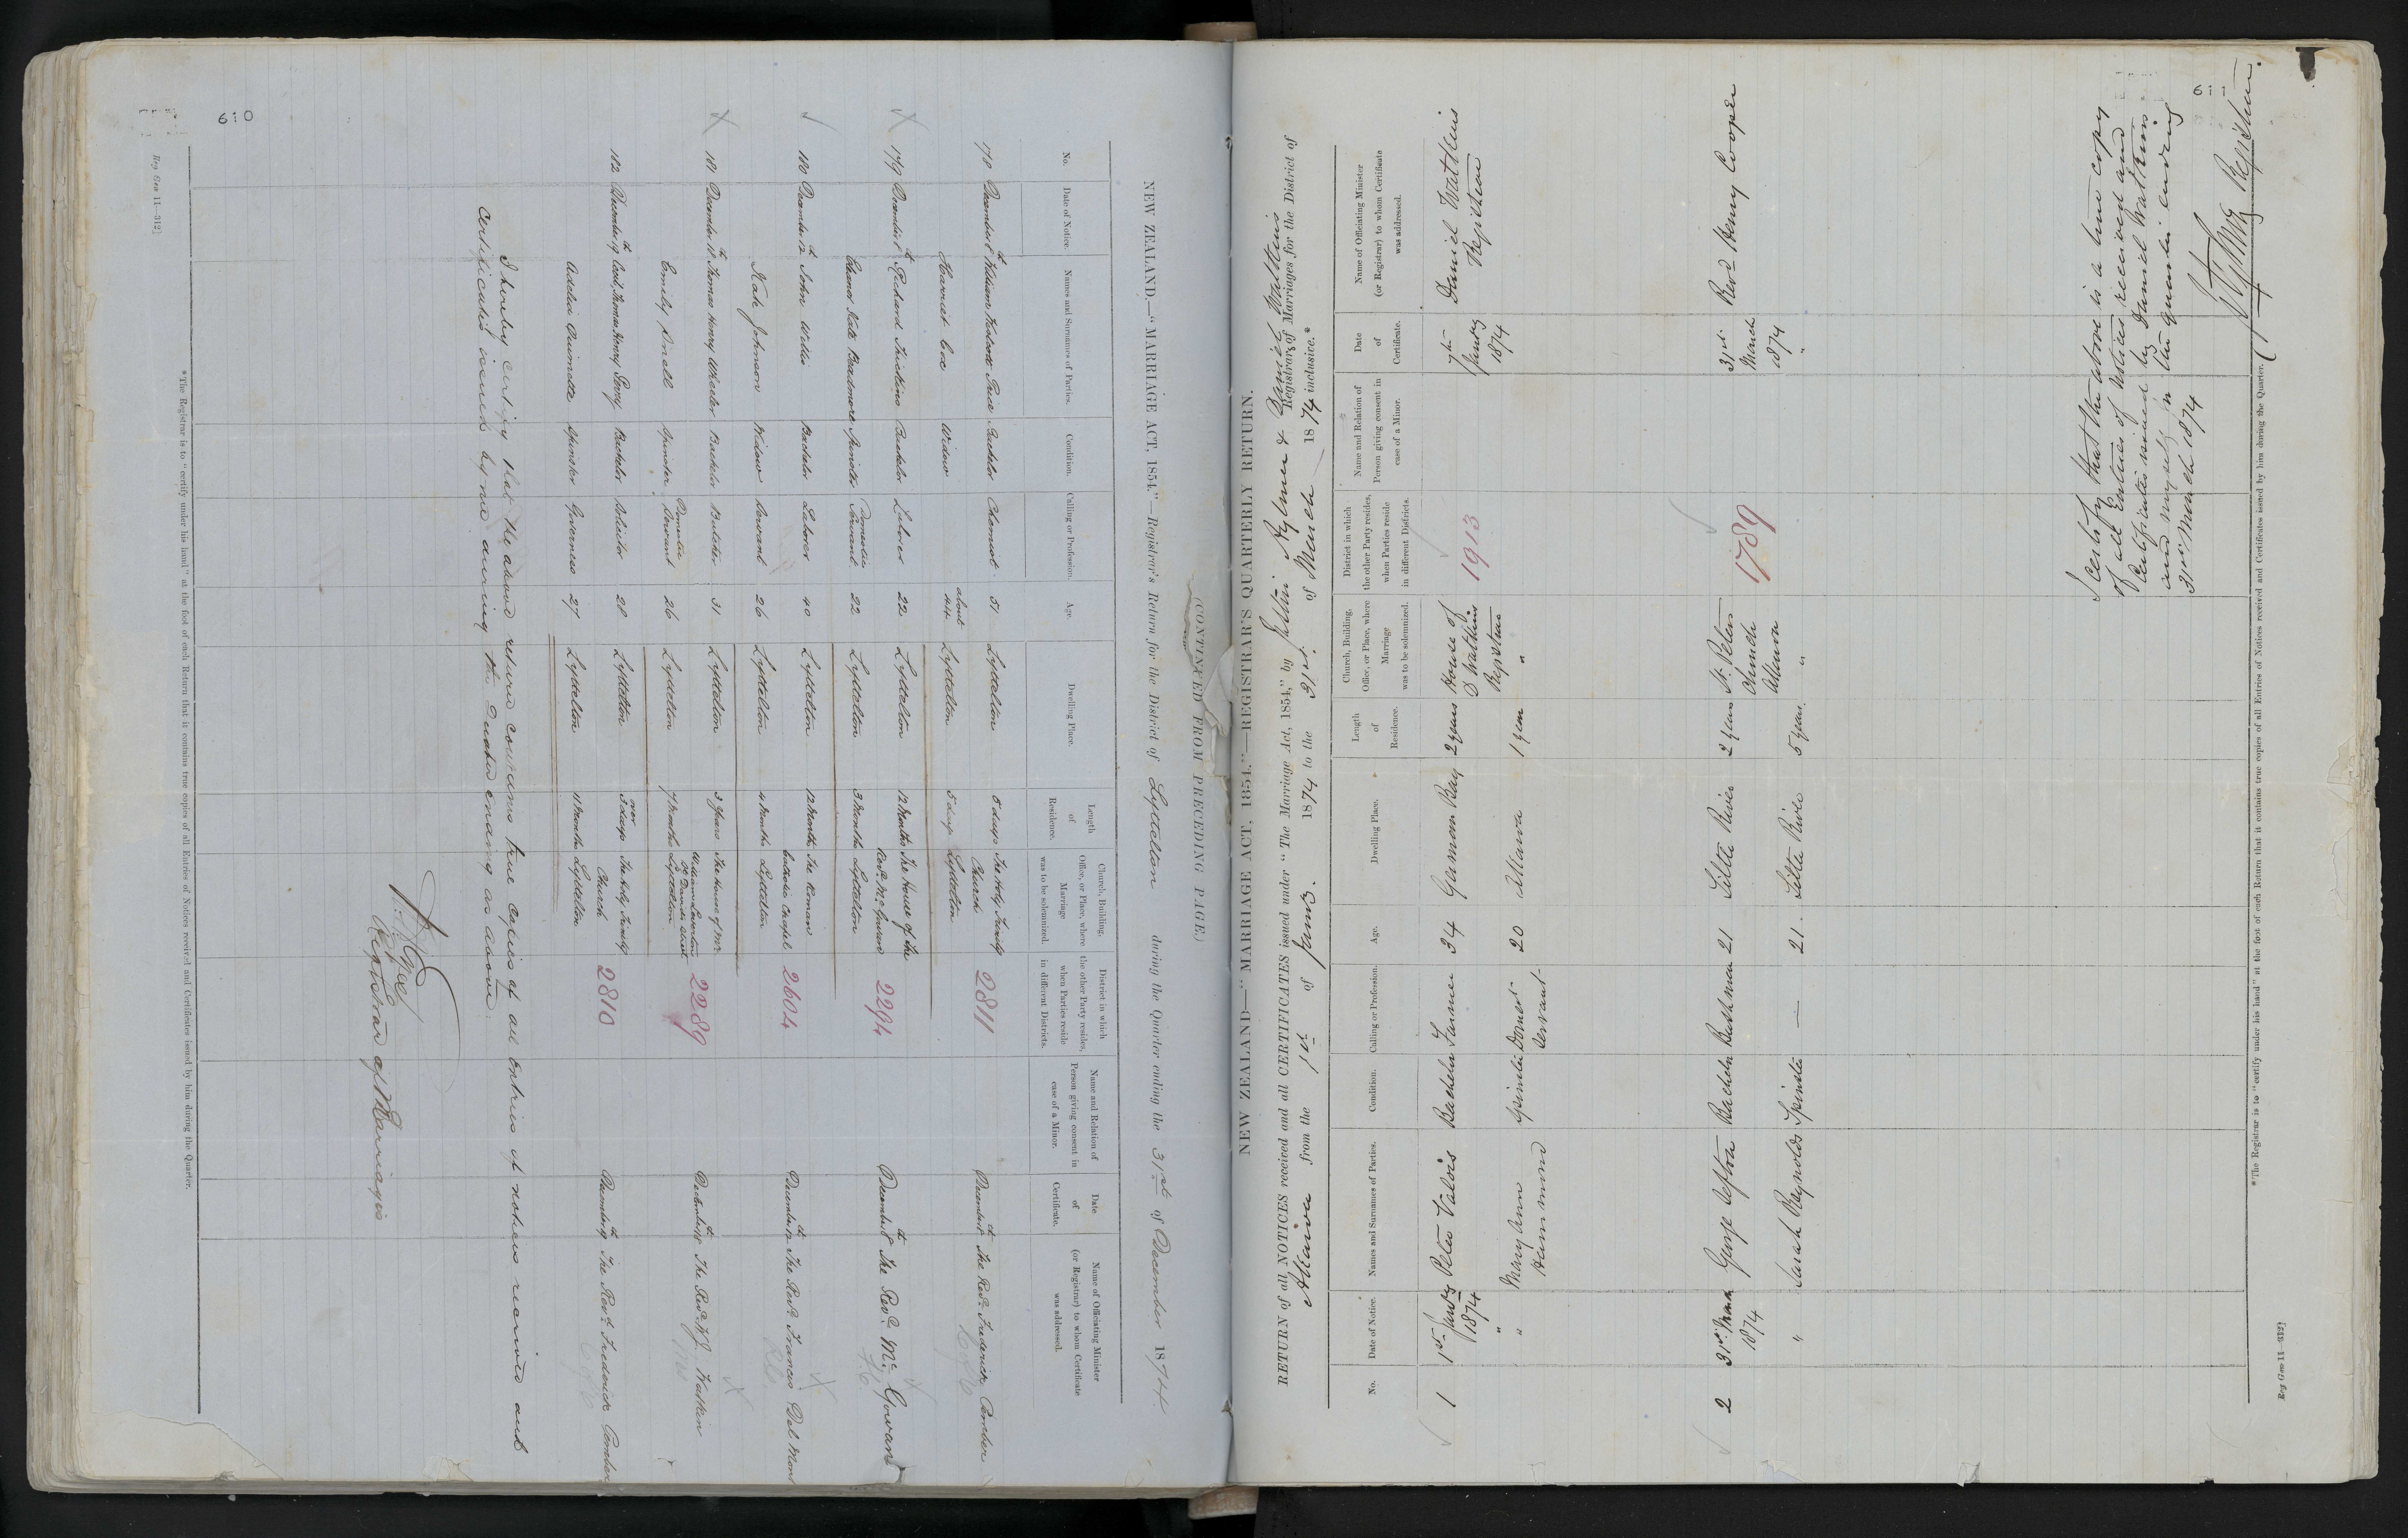 610
(CONTINUED FROM PRECEDING PAGE.)
NEW ZEALAND.—"MARRIAGE ACT, 1854."—Registrar's Return for the District of Lyttelton during the Quarter ending the 31st of December 1874
No. Date of Notice. Names and Surnames of Parties. Condition. Calling or Profession. Age. Dwelling Place. Length of Residence. Church, Building, Office, or Place, where Marriage was to be solemnized. District in which the other Party resides, when Parties reside in different Districts. Name and Relation of Person giving consent in case of a Minor. Date of Certificate. Name of Officiating Minister (or Registrar) to whom Certificate was addressed.
178 December 8th William Price Bachelor Chemist 51 Lyttelton 5 days The Holy Trinity Church 2811 December 8th The Revd. Frederick Pember
Harriet Cox Widow about 44 Lyttelton 5 days Lyttelton
179 December 8th Richard Bachelor Laborer 22 Lyttelton 12 Months The House of the Revd. Mc.Gowan 2294 December 8th The Revd. Mc. Gowan
Eleanor Kate Spinster Domestic Servant 22 Lyttelton 3 Months Lyttelton
180 December 12th John Willis Bachelor Laborer 40 Lyttelton 12 Months The Roman Catholic Chapel 2604 December 12th The Revd. Francis Del
Kate Johnson Widow Servant 26 Lyttelton 4 Months Lyttelton
181 December 18th Thomas Henry Wheeler Bachelor Butcher 31 Lyttelton 3 Years The House of Mr. William St Davids Street 2289 December 18th The Revd. W.J. Watkin
Emily Snell Spinster Domestic Servant 26 Lyttelton 7 Months Lyttelton
182 December 19th Cecil Thomas Henry Bachelor Solicitor 28 Lyttelton over 3 days The Holy Trinity Church 2810 December 19th The Revd. Frederick Pember
Adelia Spinster Governess 27 Lyttelton 11 Months Lyttelton
I hereby certify that the above return contains true copies of all Entries of notices received and
Certificates issued by me during the Quarter ending as above.
Registrar of Marriages
*The Registrar is to "certify under his hand" at the foot of each Return that it contains true copies of all Entries of Notices received and Certificates issued by him during the Quarter.
Reg Gen 11—312]
611
NEW ZEALAND—"MARRIAGE ACT, 1854."—REGISTRAR'S QUARTERLY RETURN.
RETURN of all NOTICES received and all CERTIFICATES issued under "The Marriage Act, 1854," by Justin Aylmer & Daniel Watkins Registrars of Marriages for the District of
Akaroa from the 1st of January 1874 to the 31st of March 1874 inclusive.*
No. Date of Notice. Names and Surnames of Parties. Condition. Calling or Profession. Age. Dwelling Place. Length of Residence. Church, Building, Office, or Place, where Marriage was to be solemnized. District in which the other Party resides, when Parties reside in different Districts. Name and Relation of Person giving consent in case of a Minor. Date of Certificate. Name of Officiating Minister (or Registrar) to whom Certificate was addressed.
1 1st Jany 1874 Peter Valois Bachelor Farmer 34 German Bay 2 years House of D Watkins Registrar 1913 7th January 1874 Daniel Watkins Registrar
" " Mary Ann Hammond Spinster Domest. Servant 20 Akaroa 1 year "
2 31st March 1874 George Sefton Bachelor Bushman 21 Little River 2 years St. Peters Church Akaroa 1789 31st March 1874 Revd. Henry Cooper
" Sarah Reynolds Spinster — 21. Little River 5 years " "
I certify that the above is a true copy
of all Entries of Notices received and
Certificates issued by Daniel Watkins
and myself in the Quarter ending
31st March 1874
J Aylmer Registrar.
*The Registrar is to "certify under his hand" at the foot of each Return that it contains true copies of all Entries of Notices received and Certificates issued by him during the Quarter.
Reg Gen 11—312]